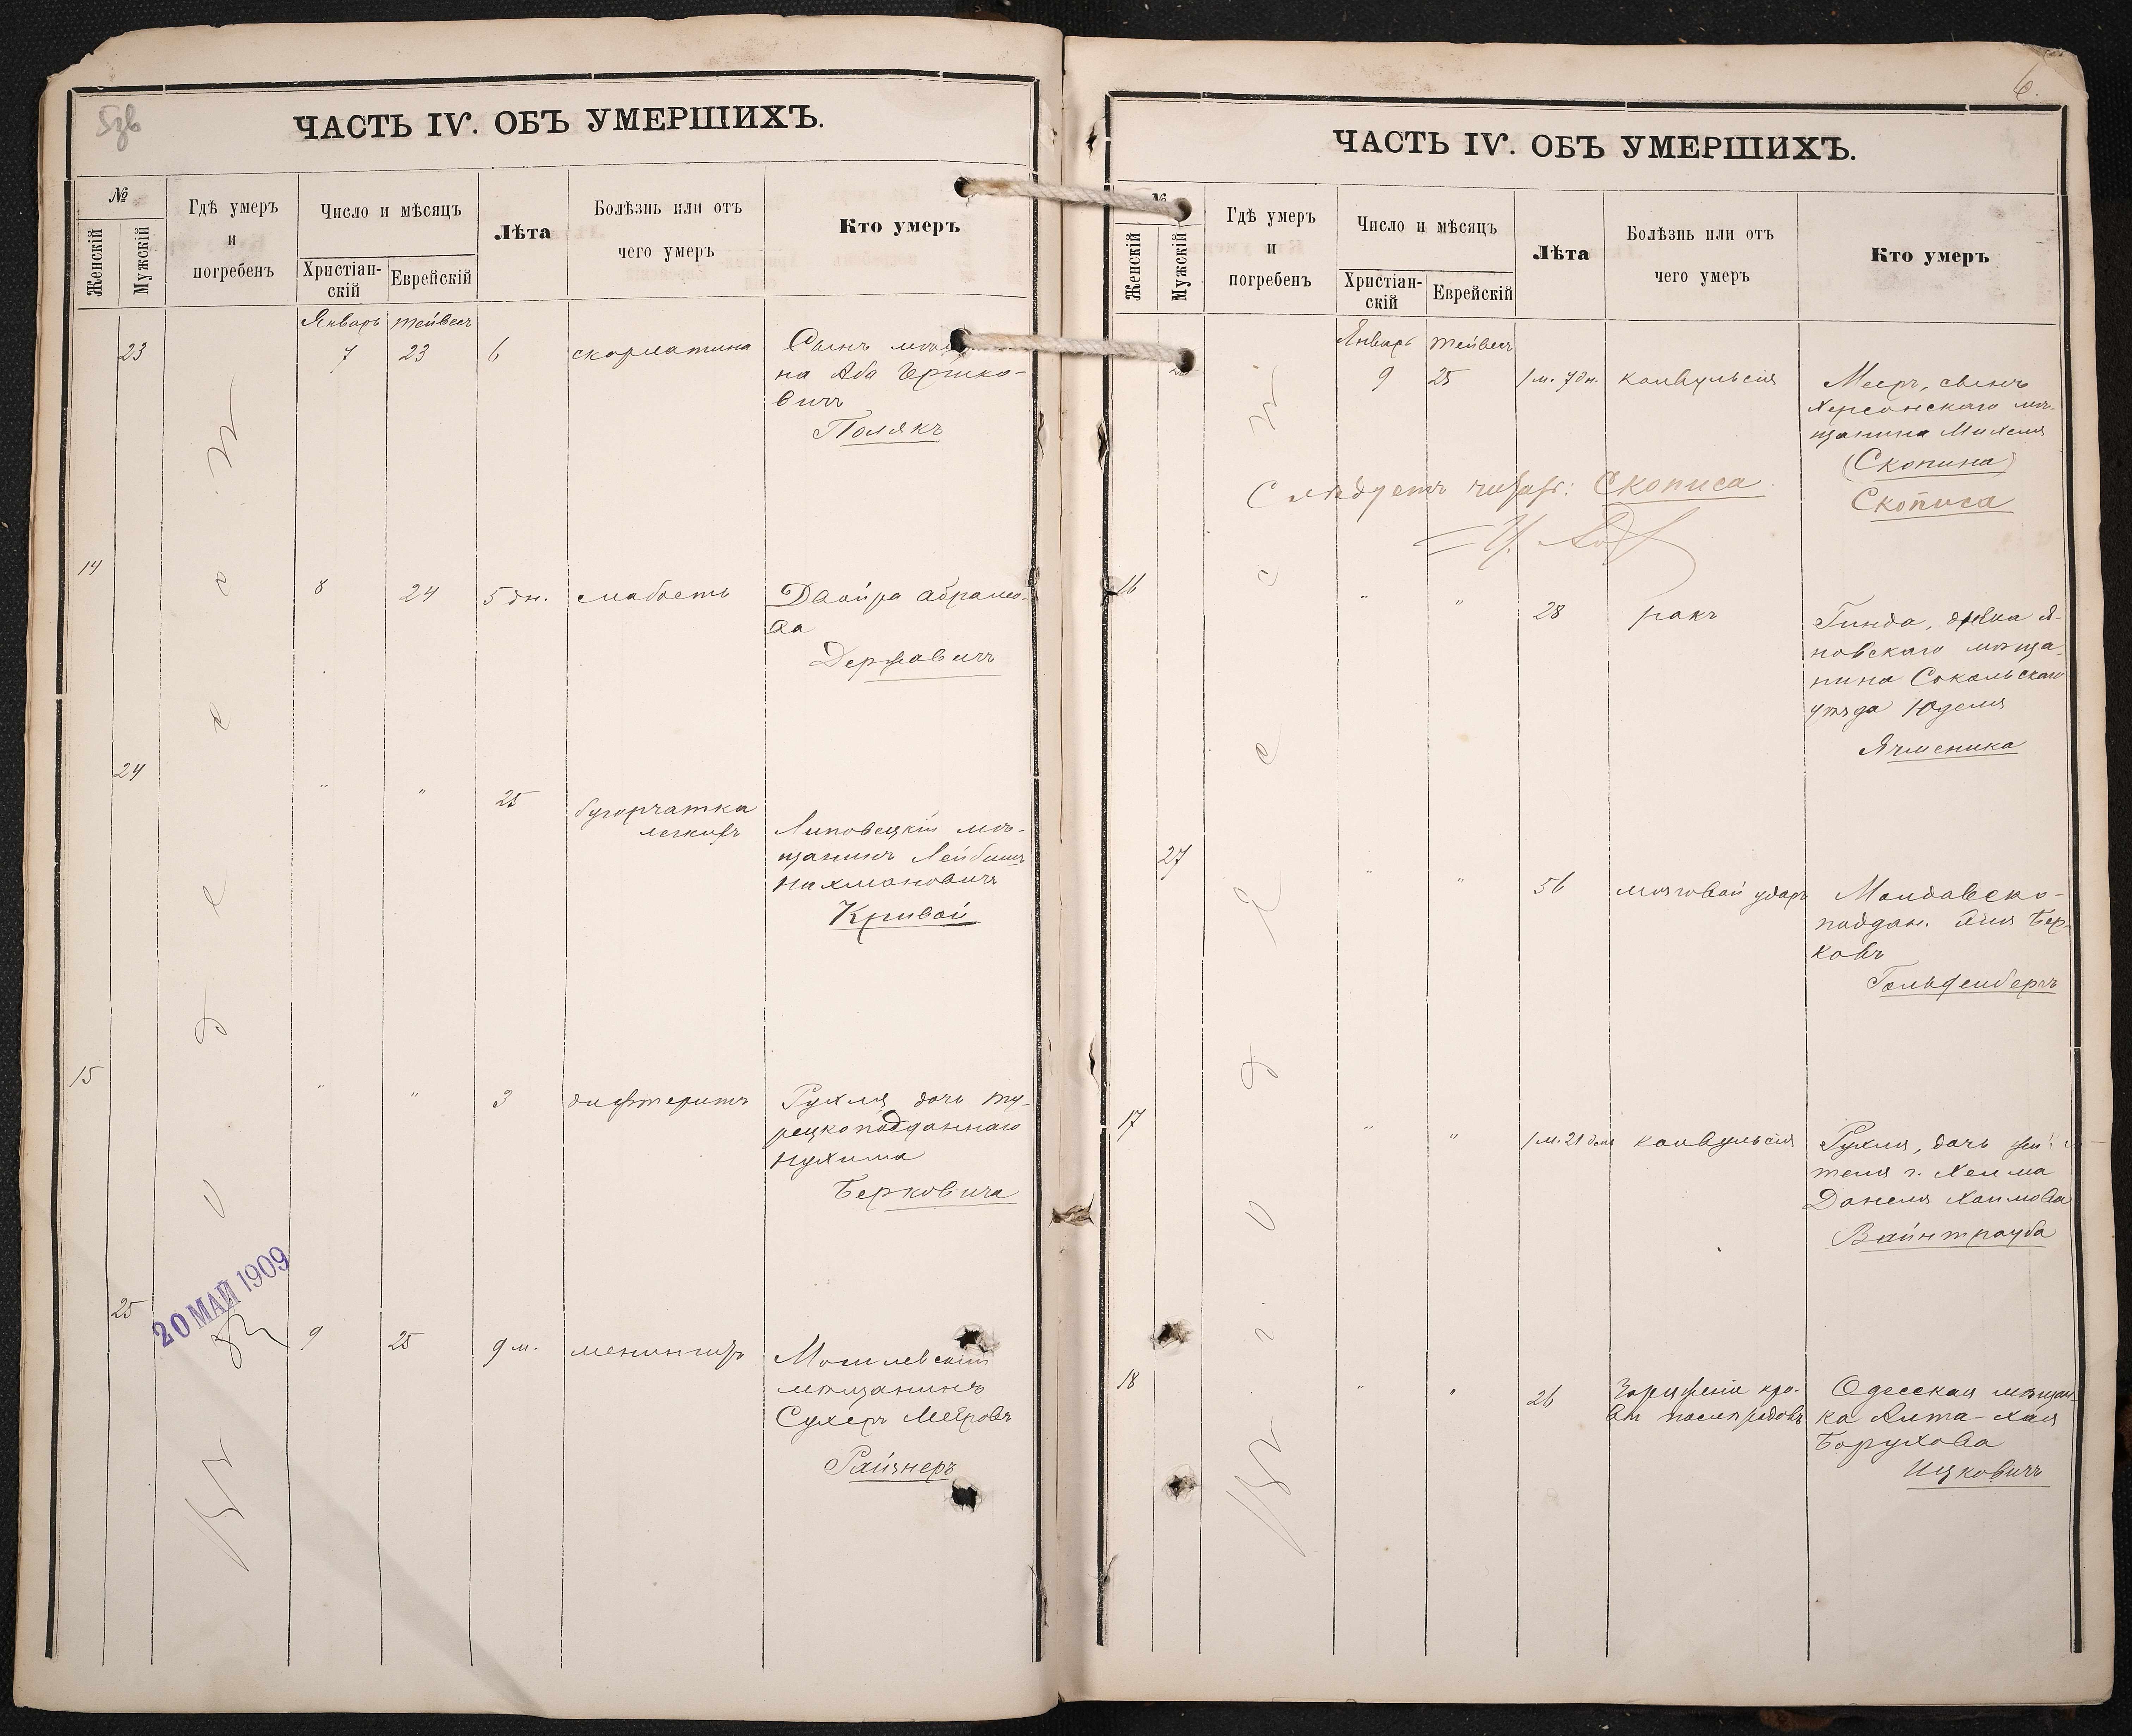 5зв
ЧАСТЬ IV. ОБЪ УМЕРШИХЪ.
№
Женскій
Мужскій
Гдѣ умеръ
и
погребенъ
Число и мѣсяцъ
Христіан-
скій
Еврейскій
Лѣта
Болѣзнь или отъ
чего умеръ
Кто умеръ
Январь Тейвесъ
23 7 23 6 скарлатина Сынъ
на Аба Гершко-
вичъ
Полякъ
14 8 24 5 дн. слабость Двойра Абрамо-
ва
Державичъ
24 " " 25 бугорчатка
легкихъ
Липовецкій мѣ-
щанинъ Лейбишъ
Нахмановичъ
Кривой
15 " " 3 дифтеритъ Рухля, дочь ту-
рецкоподданнаго
Нухима
Берковича
25 9 25 9 м. менингитъ Могилевскій
мѣщанинъ
Сухеръ Меѣровъ
Райзнеръ
Въ г. Одессѣ
20 МАЙ 1909
6.
ЧАСТЬ IV. ОБЪ УМЕРШИХЪ.
№
Женскій
Мужскій
Гдѣ умеръ
и
погребенъ
Число и мѣсяцъ
Христіан-
скій
Еврейскій
Лѣта
Болѣзнь или отъ
чего умеръ
Кто умеръ
Январь Тейвесъ
9 25 1 м. 7 дн. конвульсія Мееръ, сынъ
Херсонскаго мѣ-
щанина Михеля
(Скопина)
Скописа
Слѣдуетъ читать: Скописа.
16 " " 28 ракъ Гинда, дѣвка Я-
новскаго мѣща-
нина Сокольскаго
уѣзда Юделя
Ячменика
27 " " 56 мозговой ударъ Молдавско-
поддан. Бер-
ковъ
Гольденбергъ
17 " " 1 м. 21 день конвульсія Рухля, дочь жи-
теля г. Хелма
Данеля Хаимова
Вайнтрауба
18 " " 26 Зараженіе кро-
ви послѣ родовъ
Одесская мѣщан-
ка Алта-Хая
Борухова
Ицковичъ
Въ г. Одессѣ